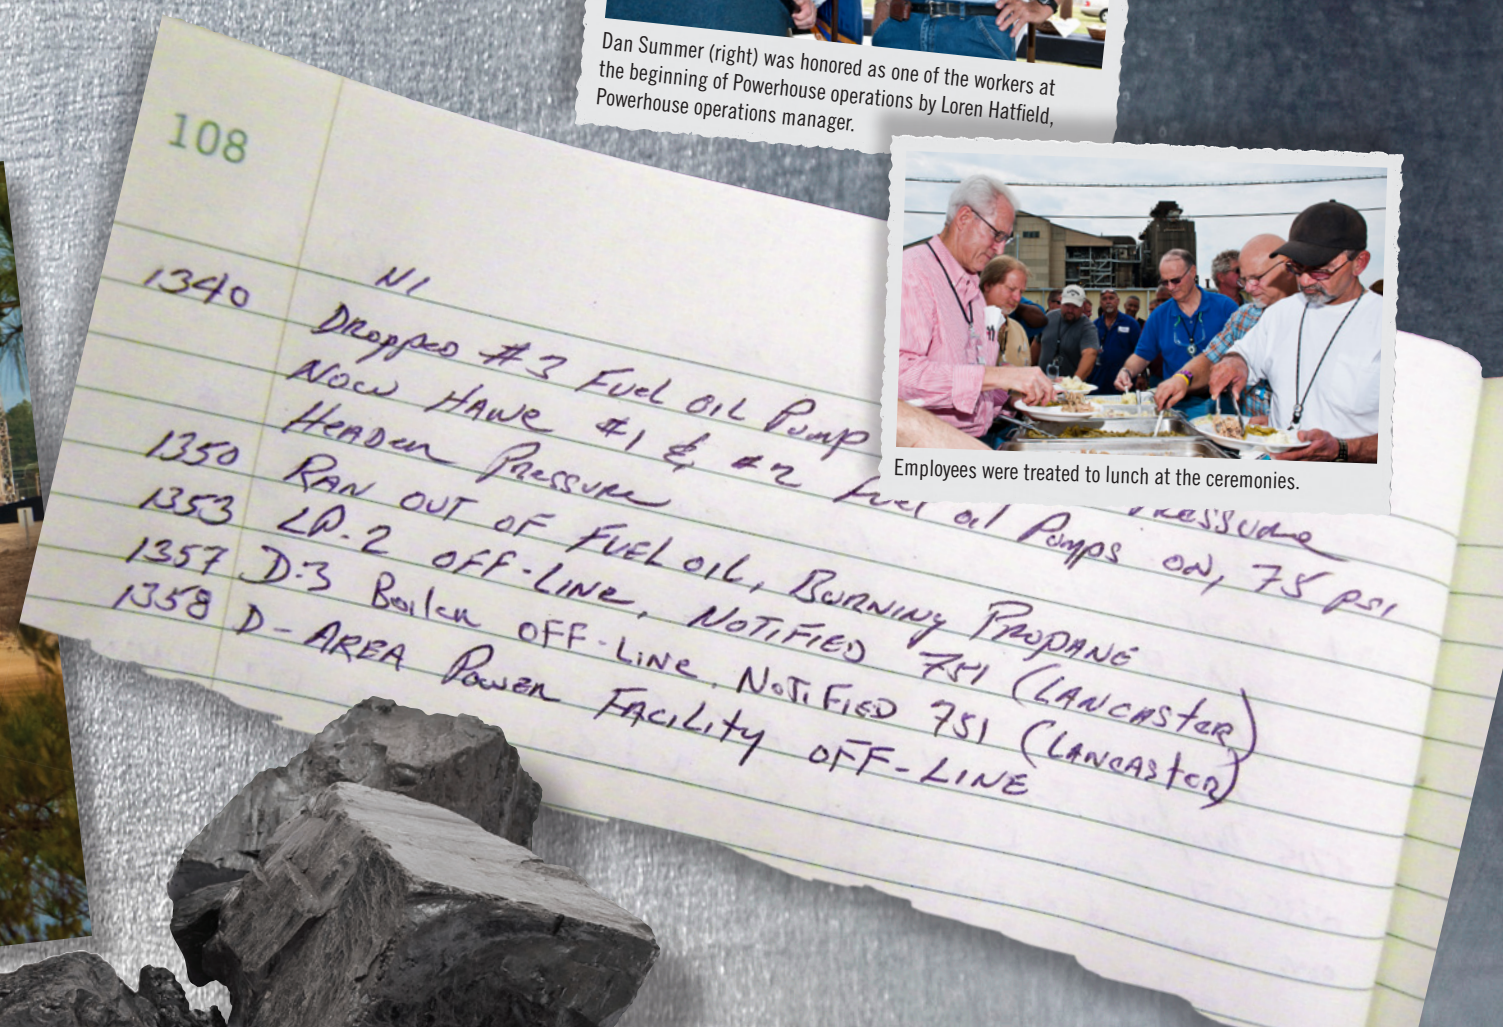 Dan Summer (right) was honored as one of the workers at
the beginning of Powerhouse operations by Loren Hatfield,
Powerhouse operations manager.
Employees were treated to lunch at the ceremonies.
108
1340 Dropped #3 Fuel oil Pump Pressure
Now Have #1 & #2 Fuel oil Pumps on, 75 psi
Header Pressure
1350 RAN OUT OF FUEL OIL, BURNING PROPANE
1353 LP.2 OFF-LINE, NOTIFIED 751 (LANCASTER)
1357 D-3 Boiler OFF-LINE, NOTIFIED 751 (LANCASTER)
1358 D-AREA Power FACILITY OFF-LINE